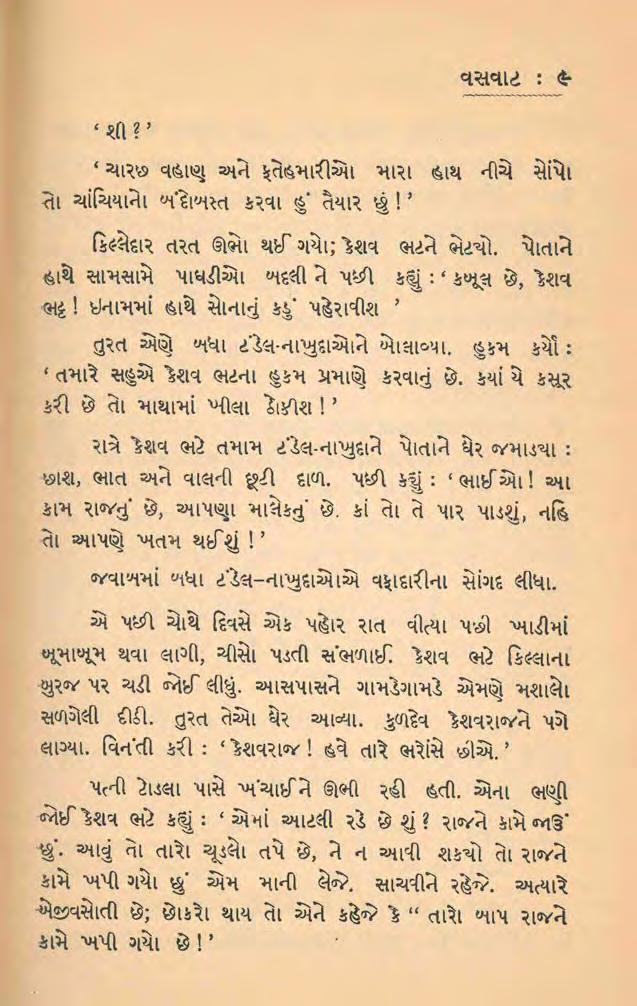 વસવાટ : ૯
‘ શી ? ’
‘ ચારછ વહાણ અને ફતેહમારીઓ મારા હાથ નીચે સોંપો
તો ચાંચિયાનો બંદોબસ્ત કરવા હું તૈયાર છું ! ’
કિલ્લેદાર તરત ઊભો થઈ ગયો; કેશવ ભટને ભેટચો. પોતાને
હાથે સામસામે પાઘડીઓ બદલી ને પછી કહ્યું : ‘ કબૂલ છે, કેશવ
ભટ્ટ ! ઇનામમાં હાથે સોનાનું કડું પહેરાવીશ ’
તુરત એણે બધા ટંડેલ-નાખુદાઓને બોલાવ્યા. હુકમ કર્યો :
‘ તમારે સહુએ કેશવ ભટના હુકમ પ્રમાણે કરવાનું છે. કયાં યે કસૂર
કરી છે તો માથામાં ખીલા ઠોકીશ ! ’
રાત્રે કેશવ ભટે તમામ ટંડેલ-નાખુદાને પોતાને ઘેર જમાડયા :
છાશ, ભાત અને વાલની છૂટી દાળ. પછી કહ્યું : ‘ ભાઈઓ ! આ
કામ રાજનું છે, આપણા માલેકનું છે. કાં તો તે પાર પાડશું, નહિ
તો આપણે ખતમ થઈશું ! ’
જવાબમાં બધા ટંડેલ–નાખુદાઓએ વફાદારીના સોગંદ લીધા.
એ પછી ચોથે દિવસે એક પહોર રાત વીત્યા પછી ખાડીમાં
બૂમાબૂમ થવા લાગી, ચીસો પડતી સંભળાઈ. કેશવ ભટે કિલ્લાના
બુરજ પર ચડી જોઈ લીધું. આસપાસને ગામડેગામડે એમણે મશાલો
સળગેલી દીઠી. તુરત તેઓ ઘેર આવ્યા. કુળદેવ કેશવરાજને પગે
લાગ્યા. વિનંતી કરી : ‘ કેશવરાજ ! હવે તારે ભરોંસે છીએ. ’
પત્ની ટોડલા પાસે ખંચાઈને ઊભી રહી હતી. એના ભણી
જોઈ કેશવ ભટે કહ્યું : ‘ એમાં આટલી રડે છે શું ? રાજને કામે જાઉં
છું. આવું તો તારો ચૂડલો તપે છે, ને ન આવી શકયો તો રાજને
કામે ખપી ગયો છું એમ માની લેજે. સાચવીને રહેજે. અત્યારે
બેજીવસોતી છે; છોકરો થાય તો એને કહેજે કે “ તારો બાપ રાજને
કામે ખપી ગયો છે ! ’